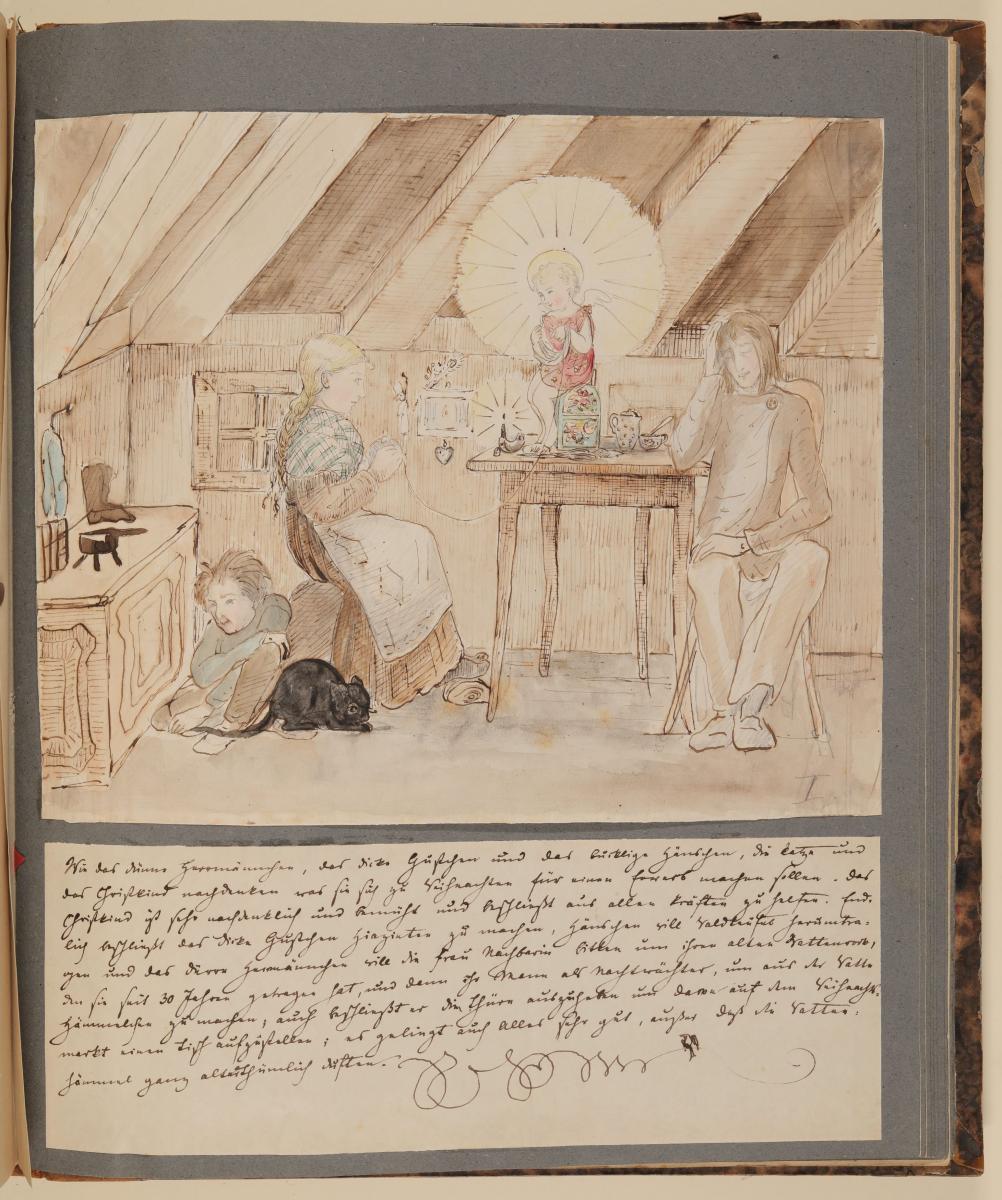 I
Wie das dünne Herrmännchen, das dicke Gustchen und das bucklige Hänschen, die Catze und
das Christkind nachdenken was sie sich zu Weihnachten für einen machen sollen. Das
Christkind ist sehr nachdenklich und bemüht und beschließt aus allen Kräften zu helfen. End-
lich beschließt das dicke Gustchen Hiazinten zu machen, Hänschen will Waldteufel herumtra-
gen und das dürre Herrmännchen will die Frau Nachbarin bitten um ihren alten Wattenrock,
den sie seit 30 Jahren getragen hat, und dann ihr Mann als Nachtwächter, um aus der Watte
Hämmelchen zu machen; auch beschließt er die Thüre auszuheben um davon auf dem Weihnachts-
markt einen Tisch aufzustellen; es gelingt auch Alles sehr gut, außer daß die Watten-
hämmel ganz alterthümlich duften.